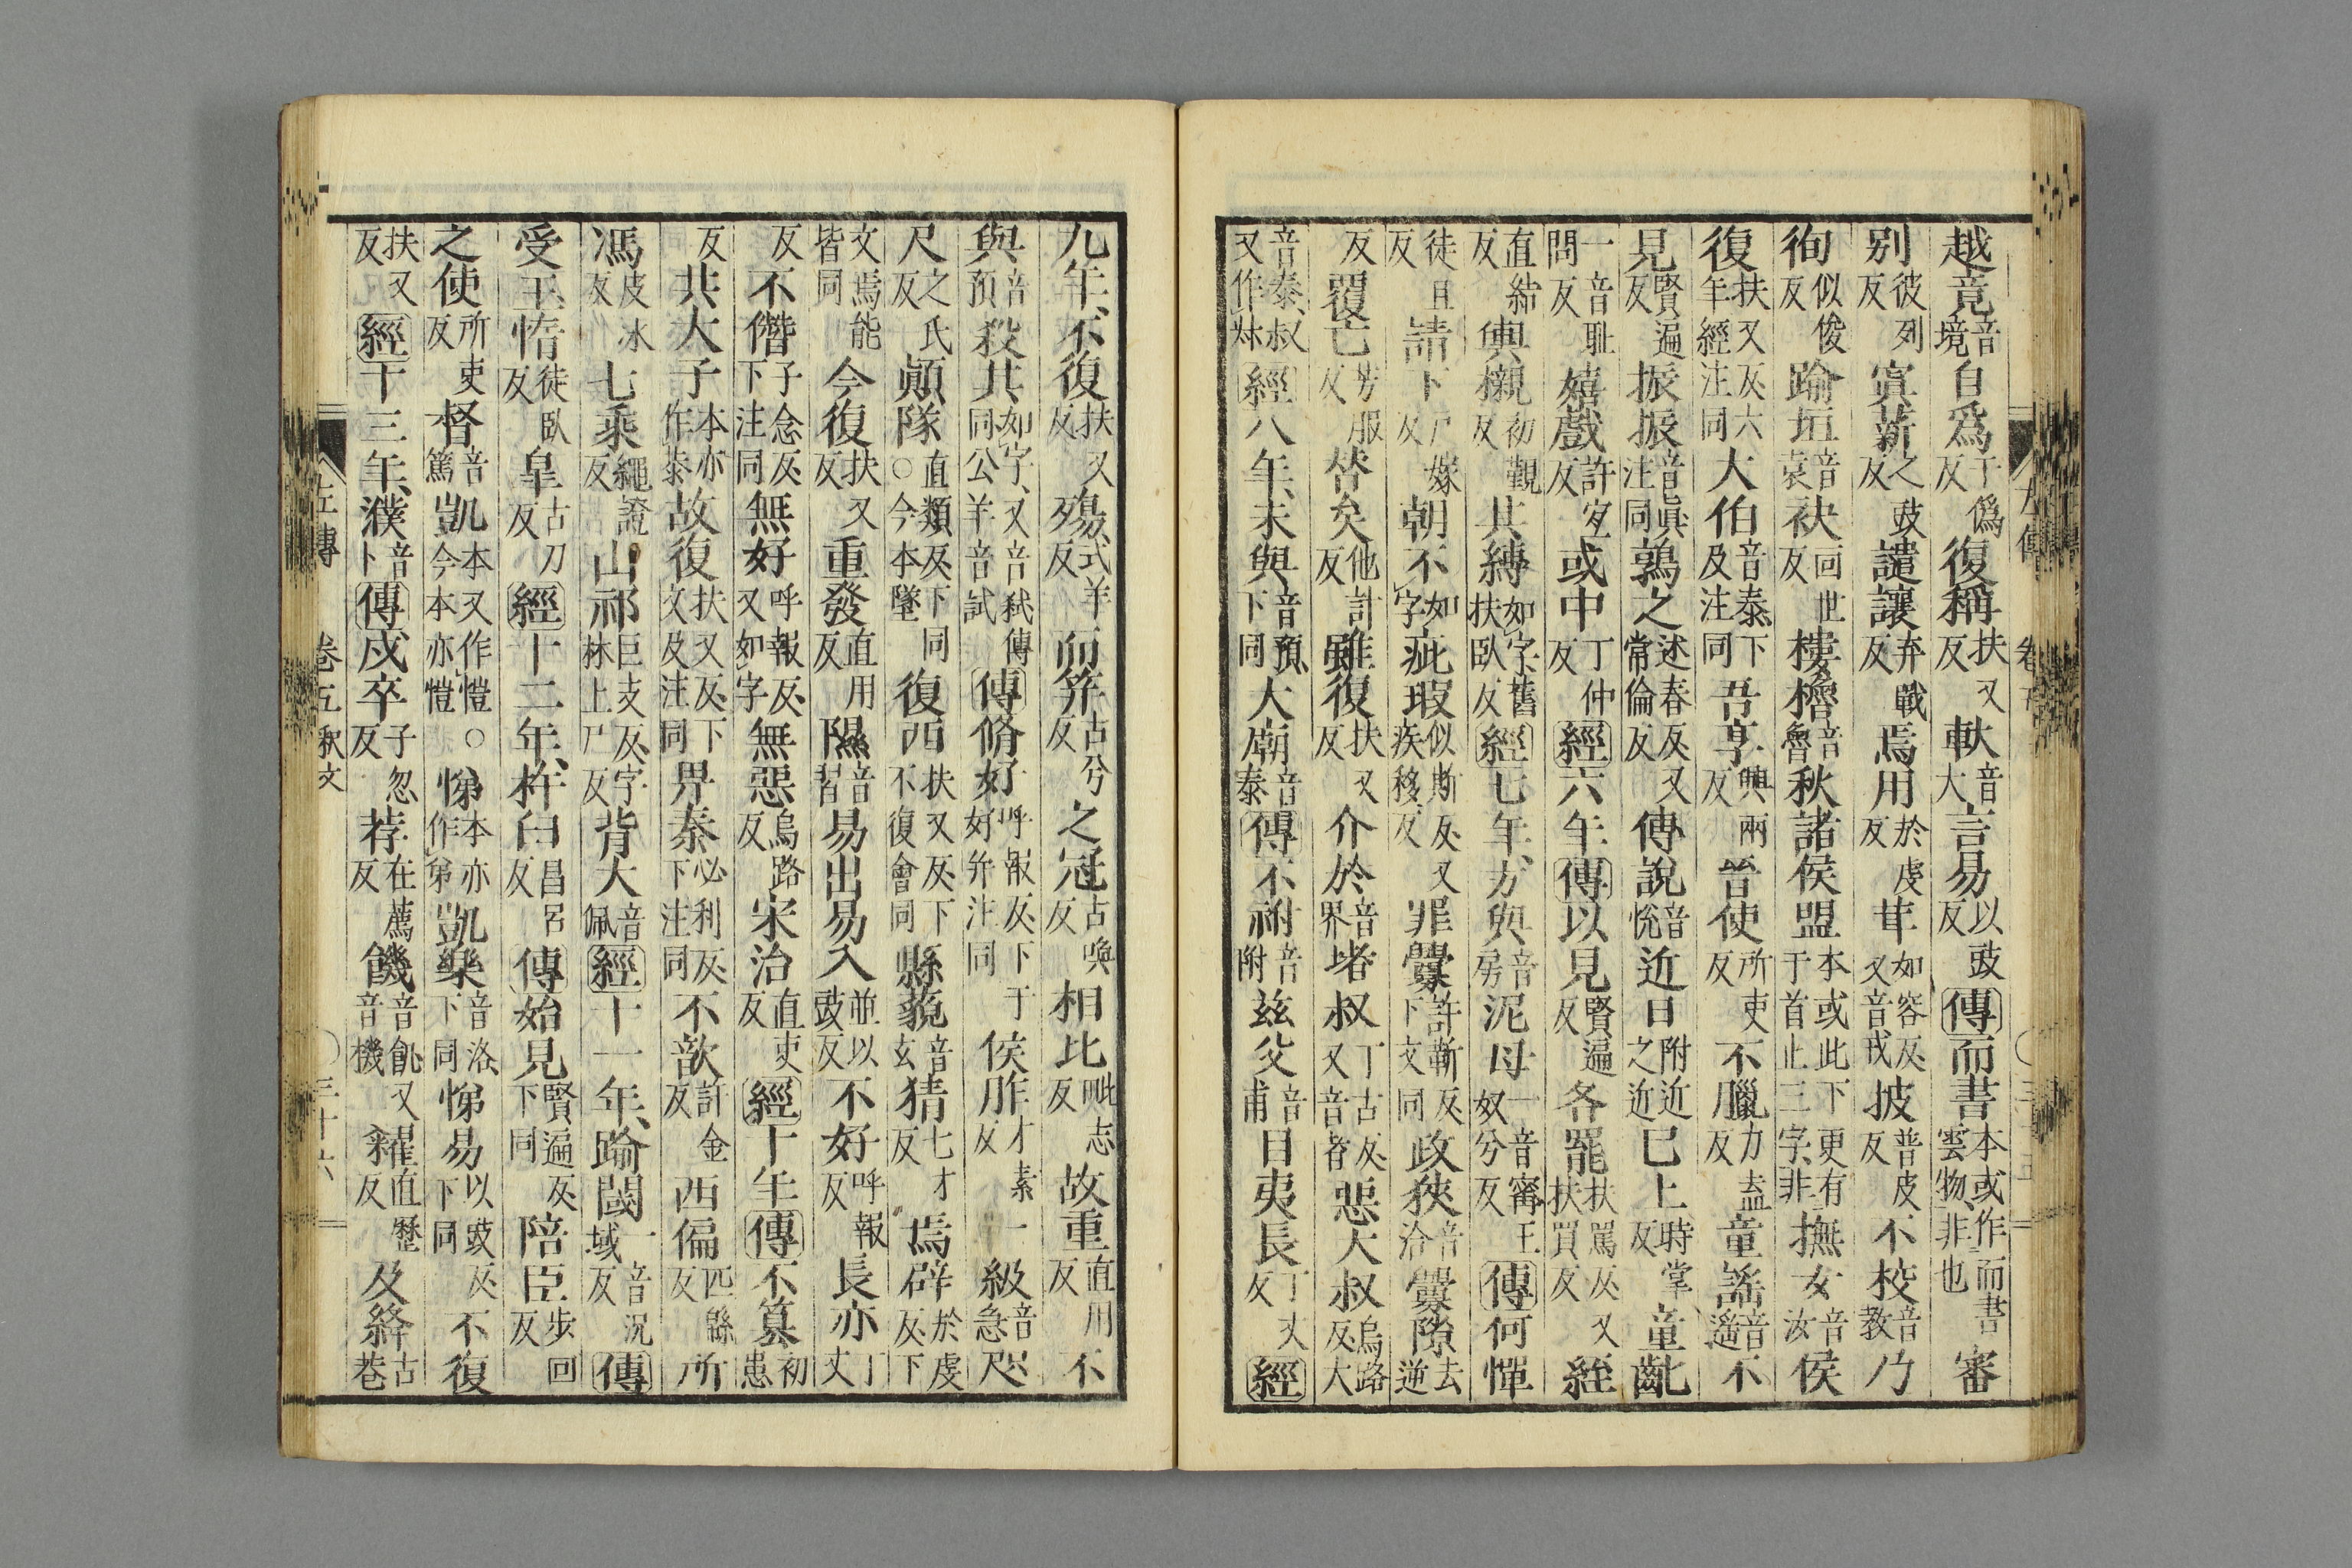 越竟音境自爲于僞反復稱扶又反軑音大言易以豉反傳而書本或作而書雲物非也審
别彼列反寘薪之豉反譴讓弃戰反焉用於虔反茸如容反又音戎披普皮反不校音教乃
徇似俊反踰垣音袁袂回世反樓櫓音魯秋諸侯盟本或此下更有于首止三字非撫女音汝侯
復扶又反六年經注同大伯音泰下及注同吾享興兩反晉使所吏反不臘力盍反童謡音遥不
見賢遍反振振音真注同鶉之述春反又常倫反傅說音悅近日附近之近巳上時掌反童齔
一音耻問反嬉戲許宜反或中丁仲反經六年傳以見賢遍反各罷扶罵反又扶買反経
直結反輿櫬初觀反其縛如字舊扶臥反經七年方與音房泥毋一音甯王奴兮反傳何憚
徒旦反請下尸嫁反朝不如字疵瑕似斯反又疾移反罪釁許靳反下文同政狹音洽釁隙去逆
反覆亡芳服反替矣他計反雖復扶又反介於音界堵叔丁古反又音者惡大叔烏路反大
音泰叔又作尗經八年未與音預下同大廟音泰傳不祔音附兹父音甫目夷長丁丈反經
左傳 卷五
九年不復扶又反殤式羊反而筓古兮反之冠古喚反相比毗志反故重直用反不
與音預殺其如字又音弒傳同公羊音試傳脩好呼報反下好并注同于侯胙才素反一級音急咫
尺之氏反顛隊直類反下同○今本墜復西扶又反下不復會同縣藐音玄猜七才反焉辟於虔反下
文焉能皆同今復扶又反重發直用反隰音習易出易入並以豉反不好呼報反長亦丁丈
反不僭子念反下注同無好呼報反又如字無惡烏路反宋治直吏反經十年傳不篡初患
反共大子本亦作泰故復扶又反下文及注同畀秦必利反下注同不歆許金反西偏匹緜反所
馮皮冰反七乘繩證反山祁巨支反字林上尸反背大音佩經十一年踰閾一音況域反傳
受玉惰徒臥反皐古刀反經十二年杵臼昌呂反傳始見賢遍反下同陪臣步回反
之使所吏反督音篤凱本又作愷○今本亦愷悌本亦作弟豈樂音洛下同悌易以豉反下同不復
扶又反經十三年濮音卜傳戍卒子忽反荐在薦反饑音飢又音機糴直歷反及絳古巷
左傳 卷五釈文 三十六